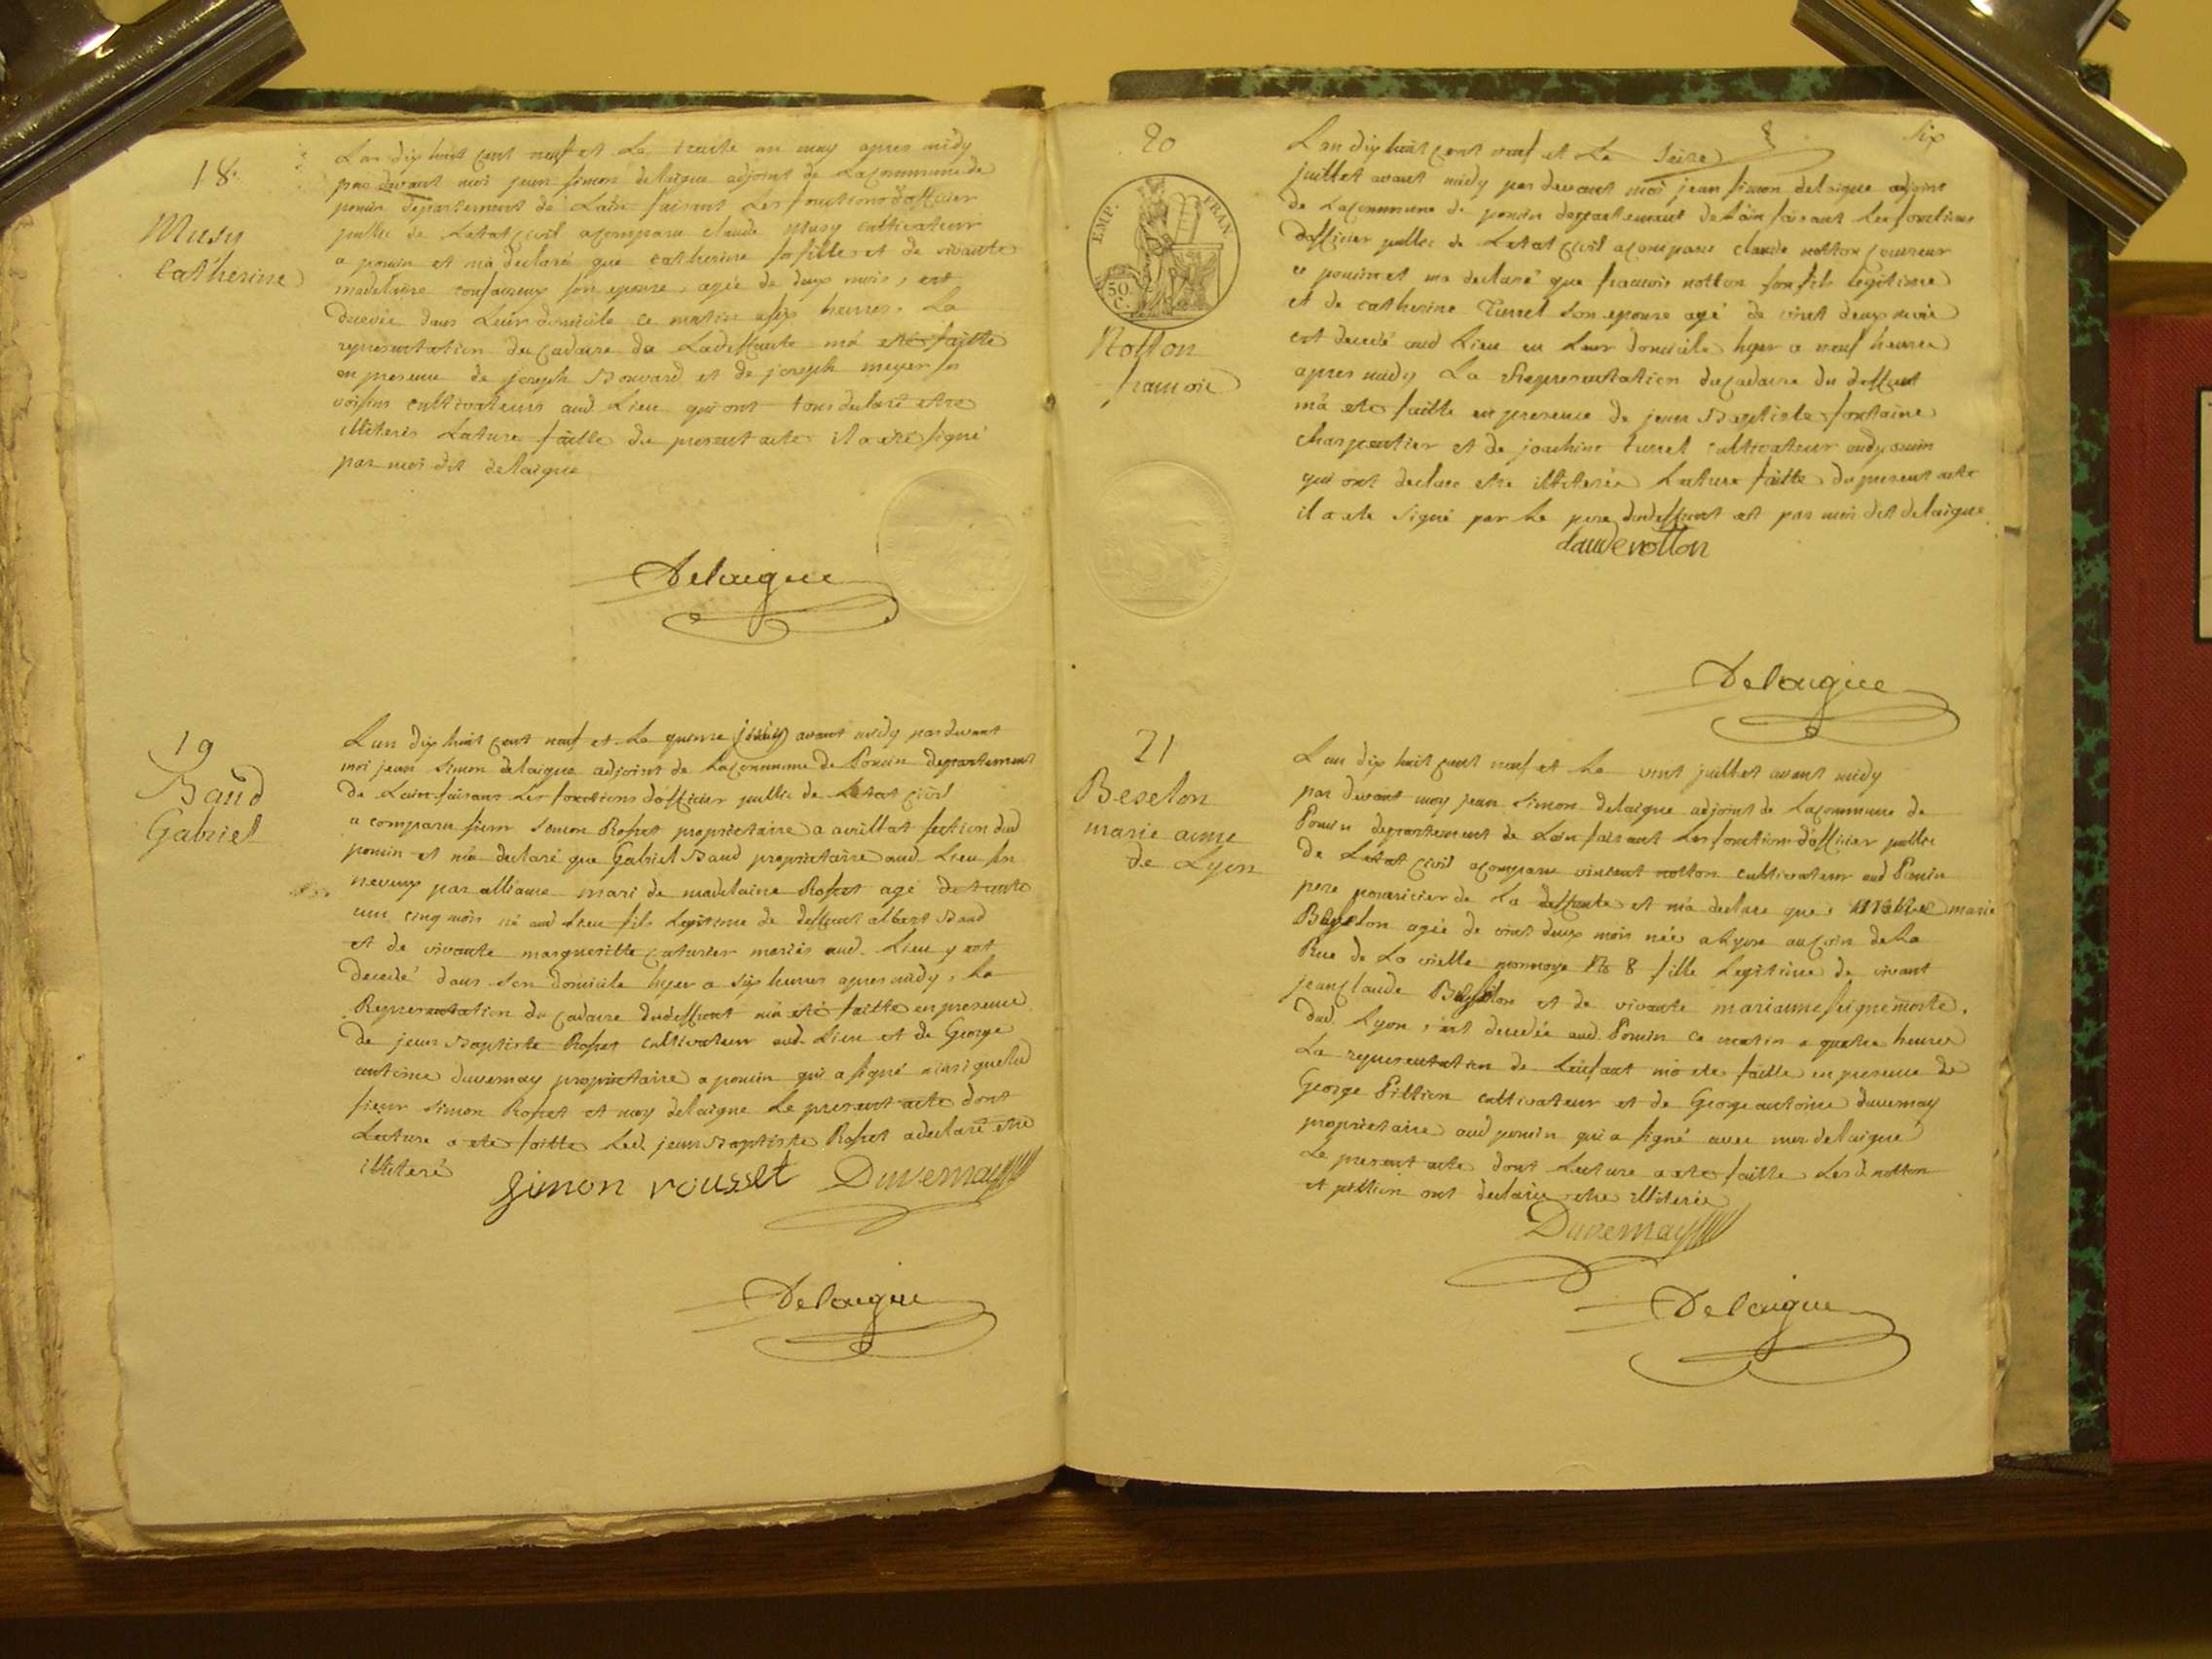 18.
Musy
Catherine
L'an dix huit cent neuf et le trente un may apres midy
par devant moi jean simon delaigue adjoint de la commune de
poncin departement de Lain faisant les fonctions d'officier
public de Letat civil a comparu claude Musy cultivateur
a poncin et m'a declaré que catherine sa fille et de vivante
madelaine son epouse, agée de deux mois, est
decedée dans Leur domicile ce matin a six heures. La
representation du cadavre de Ladeffunte m'a eté faitte
en presence de joseph Bouvard et de joseph meyer ses
voisins cultivateurs aud. Lieu qui ont tous declaré etre
illiterés Lature faitte du present acte il a eté signé
par moi dit delaigue
Delaigue
19
Baud
Gabriel
L'an dix huit cent neuf et le quinze avant midy par devant
moi jean simon delaigue adjoint de La commune de Poncin departement
de Lain faisant les fonctions d'officier public de Letat civil
a comparu sieur simon Rosset proprietaire a avrillat section dud
poncin et m'a declaré que Gabriel Baud proprietaire aud. Lieu son
neveux par alliance mari de madelaine Rosset agé de trente
un, cinq mois né aud Lieu fils Legitime de deffunt albert Baud
et de vivante margueritte mariés aud. Lieu y est
decedé dans son domicile hyer a six heures apres midy, La
Representation du cadavre dudeffunt m'a eté faitte en presence
de jean Baptiste Rosset cultivateur aud. Lieu et de George
antoine duvernay proprietaire a poncin qui a signé ainsi que led
sieur simon Rosset et moy delaigue Le present acte dont
Lecture a ete faitte Led. jean Baptiste Rosset a declaré etre
illiteré
Simon rousset Duvernay
Delaigue
six
20
EMP. FRAN.
50 C.
Notton
francois
L'an dix huit cent neuf et Le seize
juillet avant midy par devant moi jean simon delaigue adjoint
de La commune de poncin departement de Lain faisant Les fonctions
d'officier public de Letat civil a comparu claude notton
a poncin et m'a declaré que francois notton son fils Legitime
et de catherine Turrel son epouse agé de vint deux mois
est decedé aud Lieu en Leur domicile hyer a neuf heures
apres midy La Representation du cadavre du deffunt
m'a eté faitte en presence de jean Baptiste fontaine
charpentier et de joachim turrel cultivateur aud poncin
qui ont declaré etre illiterés Lature faitte du present acte
il a ete signé par Le pere dudeffunt et par moi dit delaigue
claude notton
Delaigue
21
Beselon
marie aime
de Lyon
L'an dix huit cent neuf et Le vint juillet avant midy
par devant moy jean simon delaigue adjoint de La commune de
Poncin departement de Lain faisant Les fonctions d'officier public
de Letat civil a comparu vincent notton cultivateur aud Poncin
pere nouricier de La deffunte et m'a declaré que marie
agée de vint deux mois née a Lyon au coin de La
Rue de La vielle monnoye No 8 fille Legitime de vivant
jean claude et de vivante marianne seignemorte,
dud. Lyon, est decedée aud. Poncin ce matin a quatre heures
La representation de Lenfant m'a ete faitte en presence de
George Pillion cultivateur et de George antoine duvernay
proprietaire aud poncin qui a signé avec moi delaigue
Le present acte dont Lecture a ete faitte Les d. notton
et pillion ont declaré etre illiterés
Duvernay
Delaigue